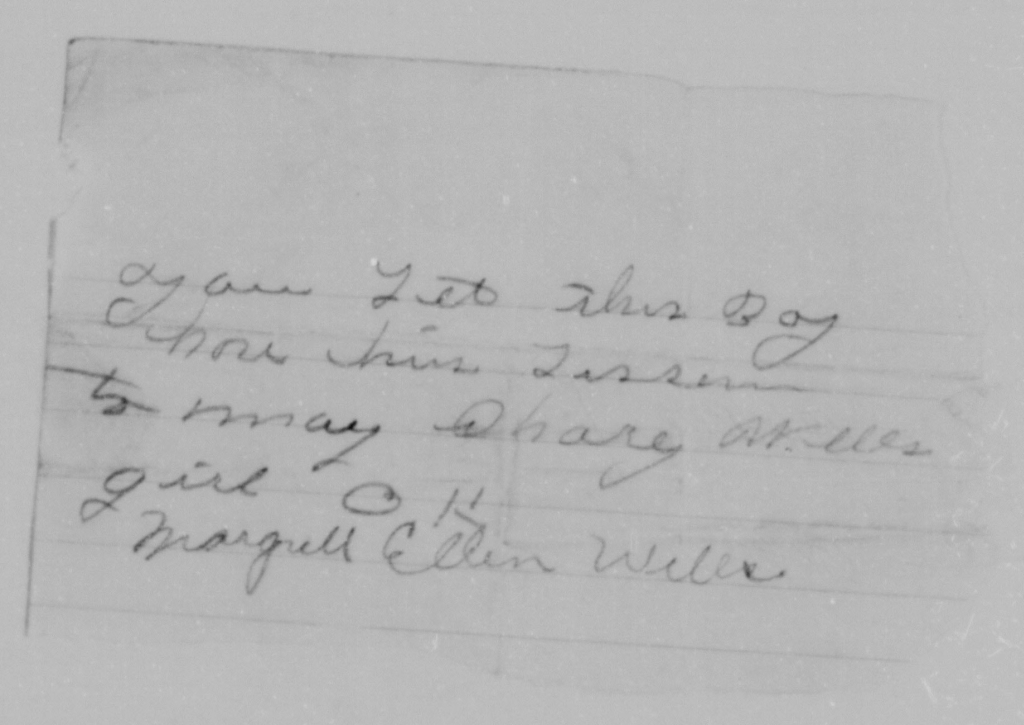 you Let this Boy
have his Lissem
to may Wills
girl O K
Margrett Ellin Wills